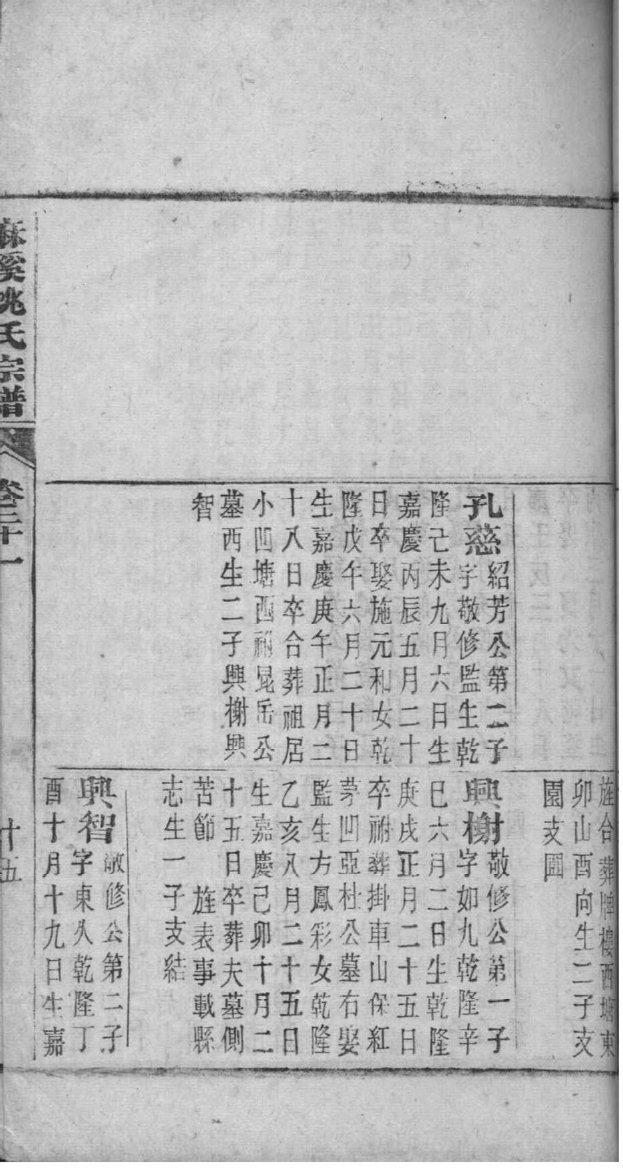 旌合葬牌樓西塘東
卯山酉向生二子支
園支圓
孔慈
紹芳公第二子
字敬修監生乾
隆己未九月六日生
嘉慶丙辰五月二十
日卒娶施元和女乾
隆戊午六月二十日
生嘉慶庚午正月二
十八日卒合葬祖居
小凹塘西祔晁岳公
墓西生二子興榭興
智
興榭
敬修公第一子
字如九乾隆辛
巳六月二日生乾隆
庚戌正月二十五日
卒祔葬掛車山保紅
茅凹亞杜公墓右娶
監生方鳳彩女乾隆
乙亥八月二十五日
生嘉慶己卯十月二
十五日卒葬夫墓側
苦節 旌表事載縣
志生一子支結
興智
敬修公第二子
字東久乾隆丁
酉十月十九日生嘉
麻溪姚氏宗譜
卷二十一
十五